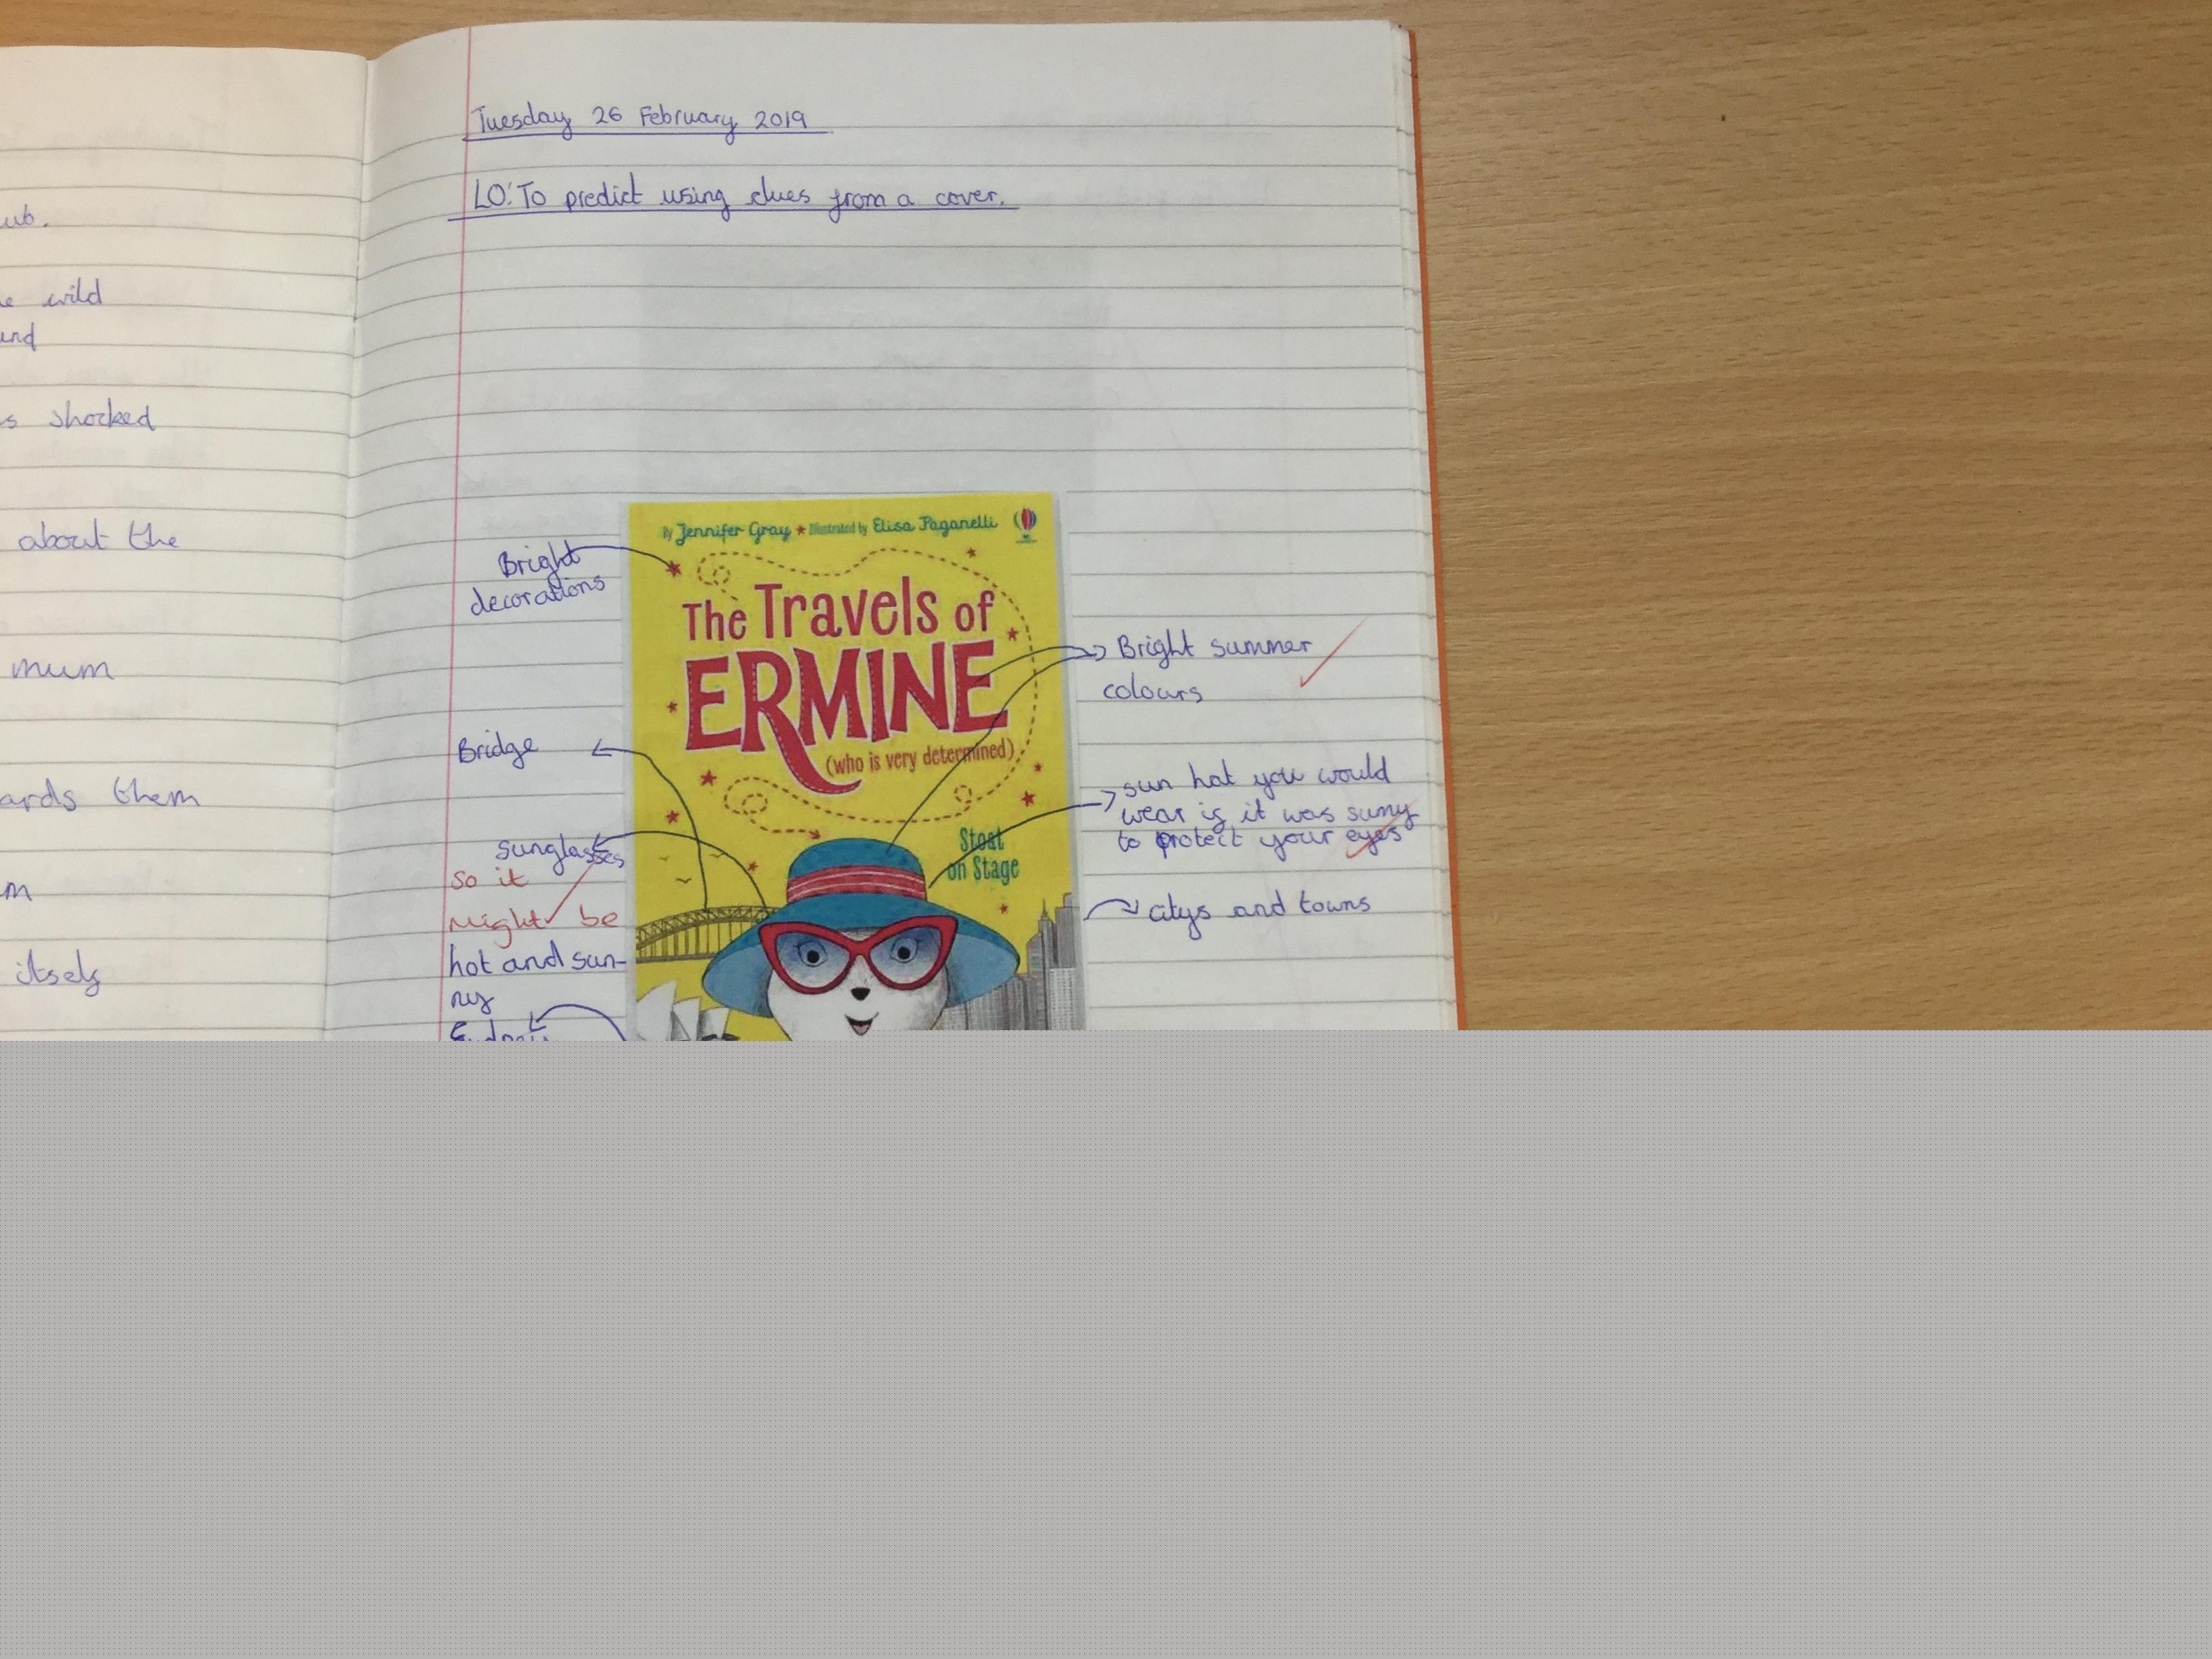 ub.
wild
und
s shocked
about the
mum
ards them
m
itself
Tuesday 26 February 2019
LO: To predict using clues from a cover.
By Jennifer Gray ★ Illustrated by Elisa Paganelli
The Travels of
ERMINE
(who is very determined)
Stoat
on Stage
Bright
decorations
Bridge
sunglasses
so it
might be
hot and sun-
ny
Sydney
Bright summer
colours
sun hat you would
wear if it was sunny
to protect your eyes
citys and towns